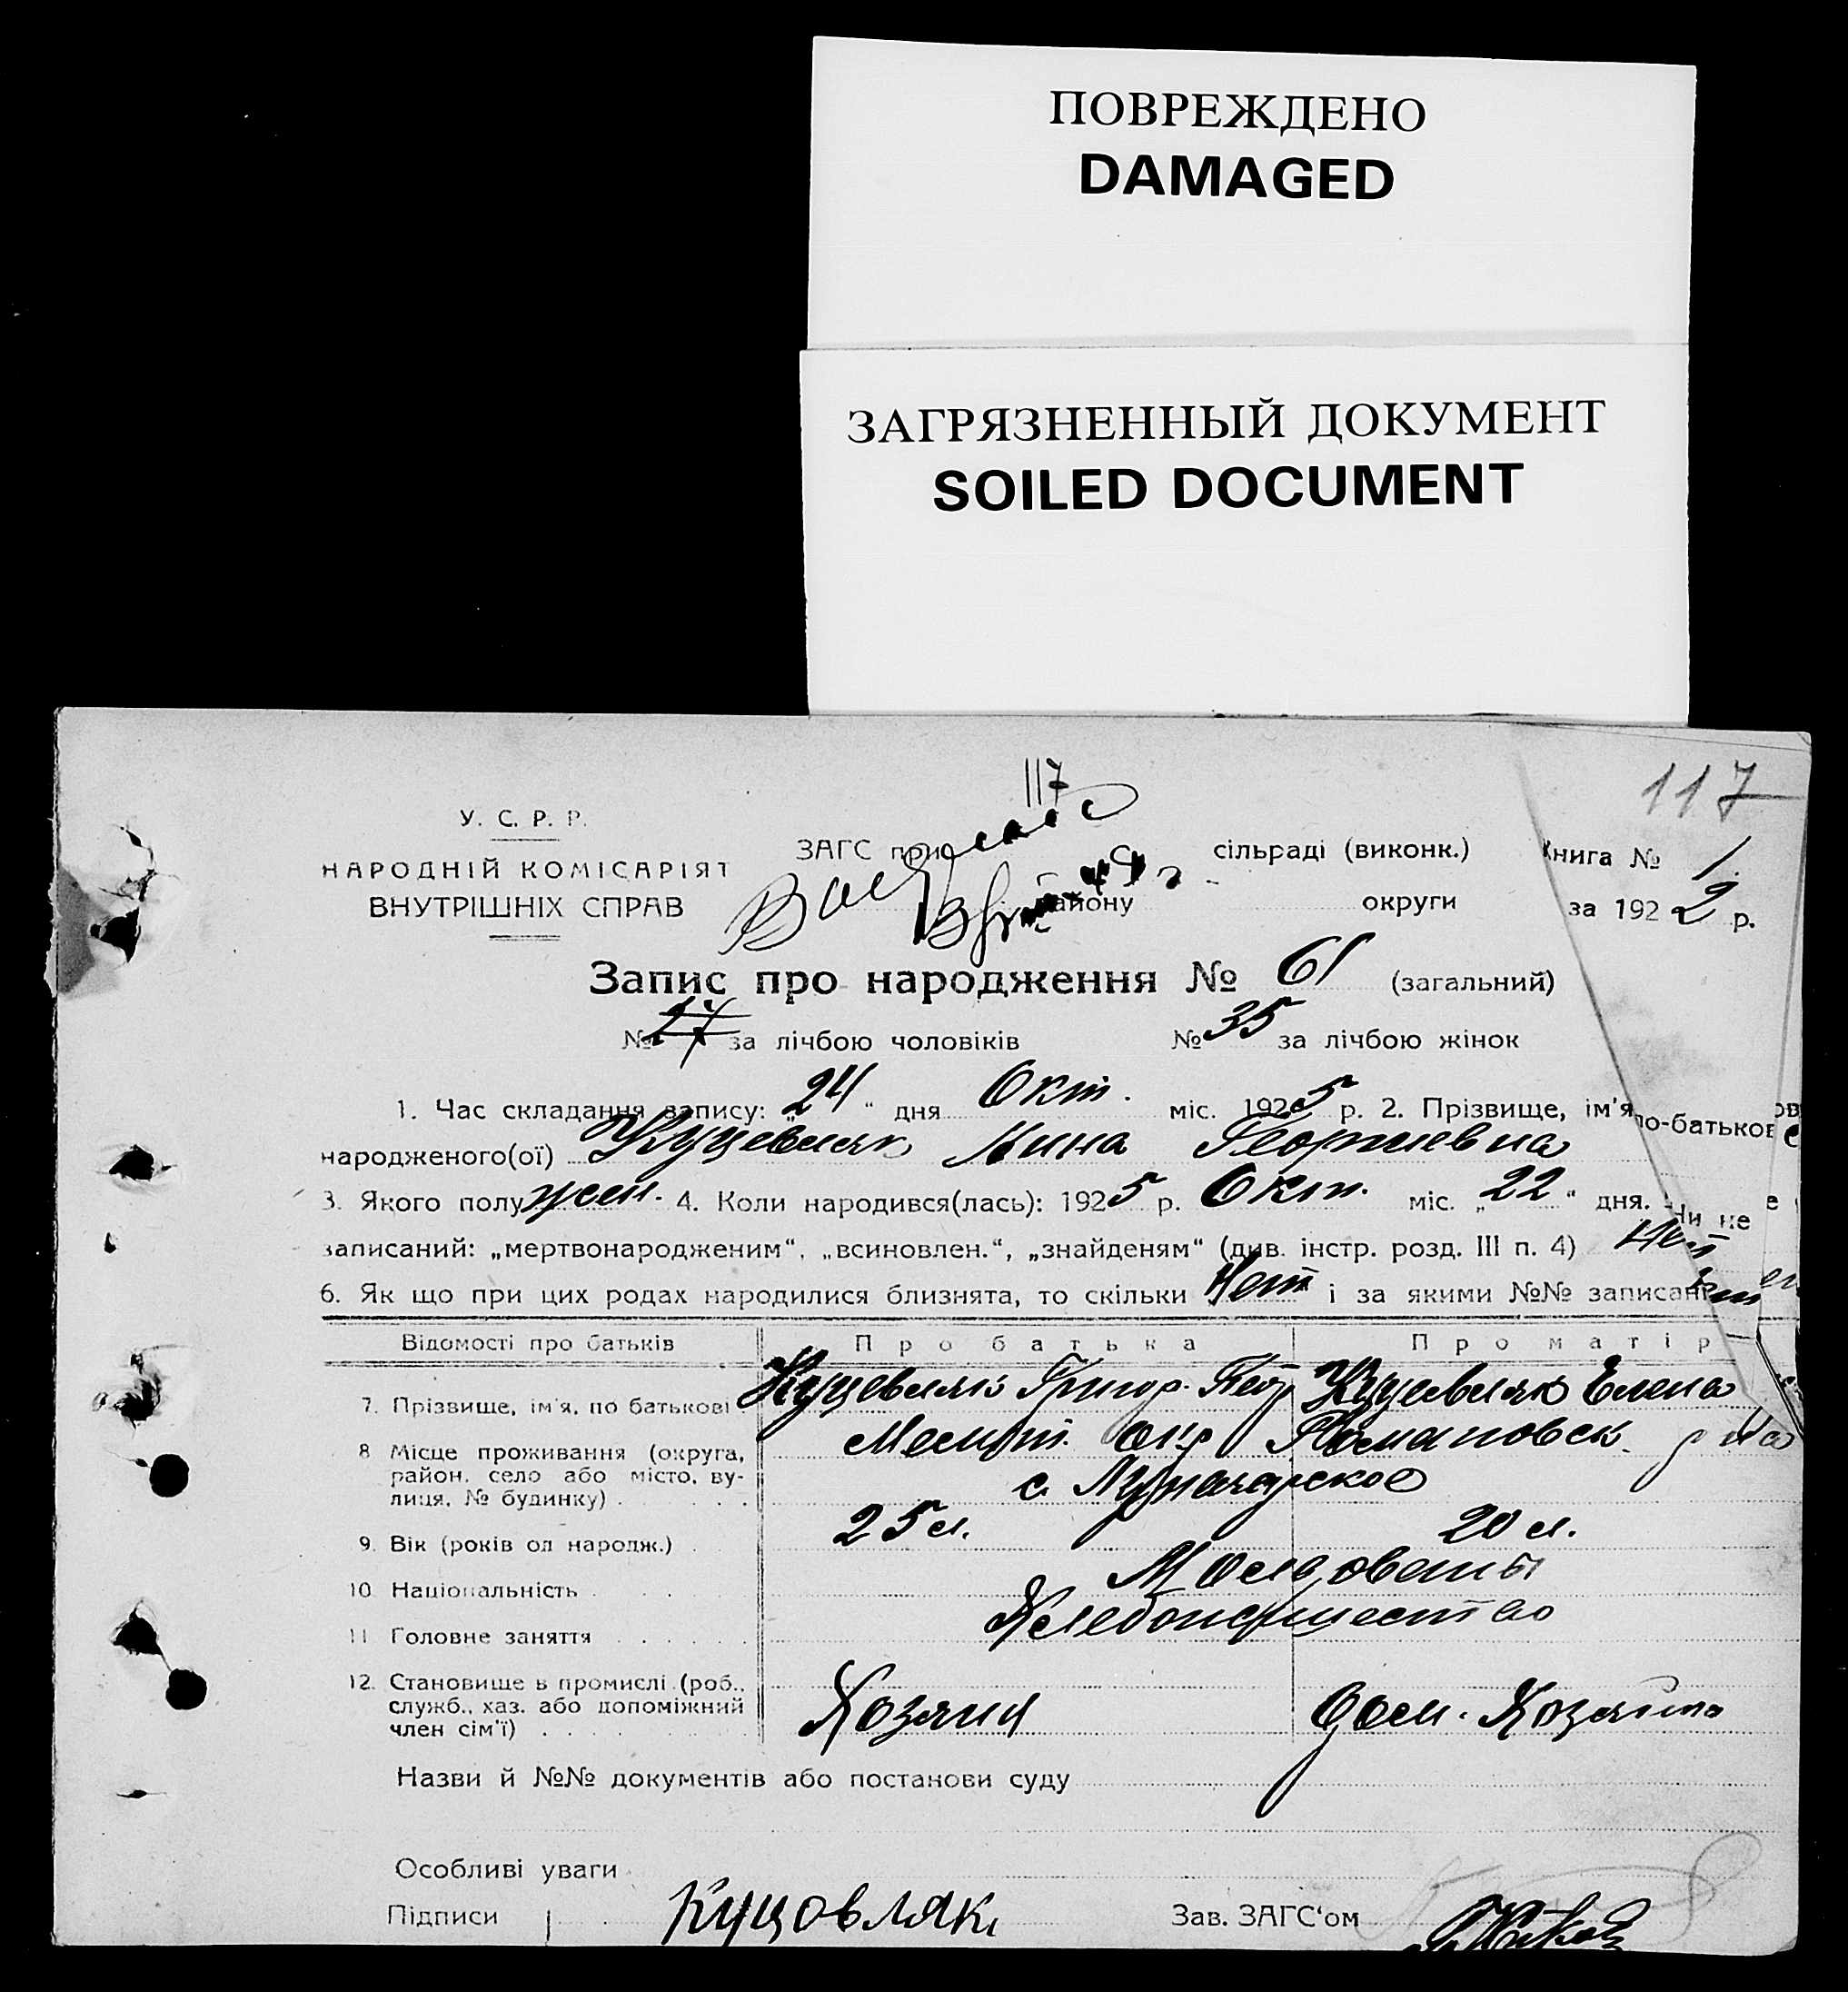 ПОВРЕЖДЕНО
DAMAGED
ЗАГРЯЗНЕННЫЙ ДОКУМЕНТ
SOILED DOCUMENT
117
117
У. С. Р. Р.
НАРОДНІЙ КОМІСАРІЯТ
ВНУТРІШНІХ СПРАВ
ЗАГС при сільраді (виконк.)
району округи
Книга № 1.
за 1922 р.
Запис про народження № 61 (загальний)
№ 27 за лічбою чоловіків № 35 за лічбою жінок
1. Час складання запису: „24“ дня Окт. міс. 1925 р. 2. Прізвище, ім'я по-батьков
народженого(ої) Куцевляк Нина Георгиевна
3. Якого полу жен. 4. Коли народився(лась): 1925 р. Окт. міс. „22“ дня. Чи не
записаний: „мертвонародженим“, „всиновлен.“, „знайденям“ (див. інстр. розд. III п. 4) Нет
6. Як що при цих родах народилися близнята, то скільки Нет і за якими №№ записан
Відомості про батьків Про батька Про матір
7. Прізвище, ім'я, по батькові Куцевляк Григор. Петр Куцевляк Елена
8 Місце проживання (округа, район, село або місто, вулиця, № будинку) Мелит. окр Романовск. р на
с. Луначарское
9. Вік (років од народж.) 25 л. 20 л.
10 Національність Молдованы
11 Головне заняття Хлебопашество
12. Становище в промислі (роб., служб., хаз. або допоміжний член сім'ї) Хозяин дом. Хозяйка
Назви й №№ документів або постанови суду
Особливі уваги
Підписи Куцовляк Зав. ЗАГС'ом